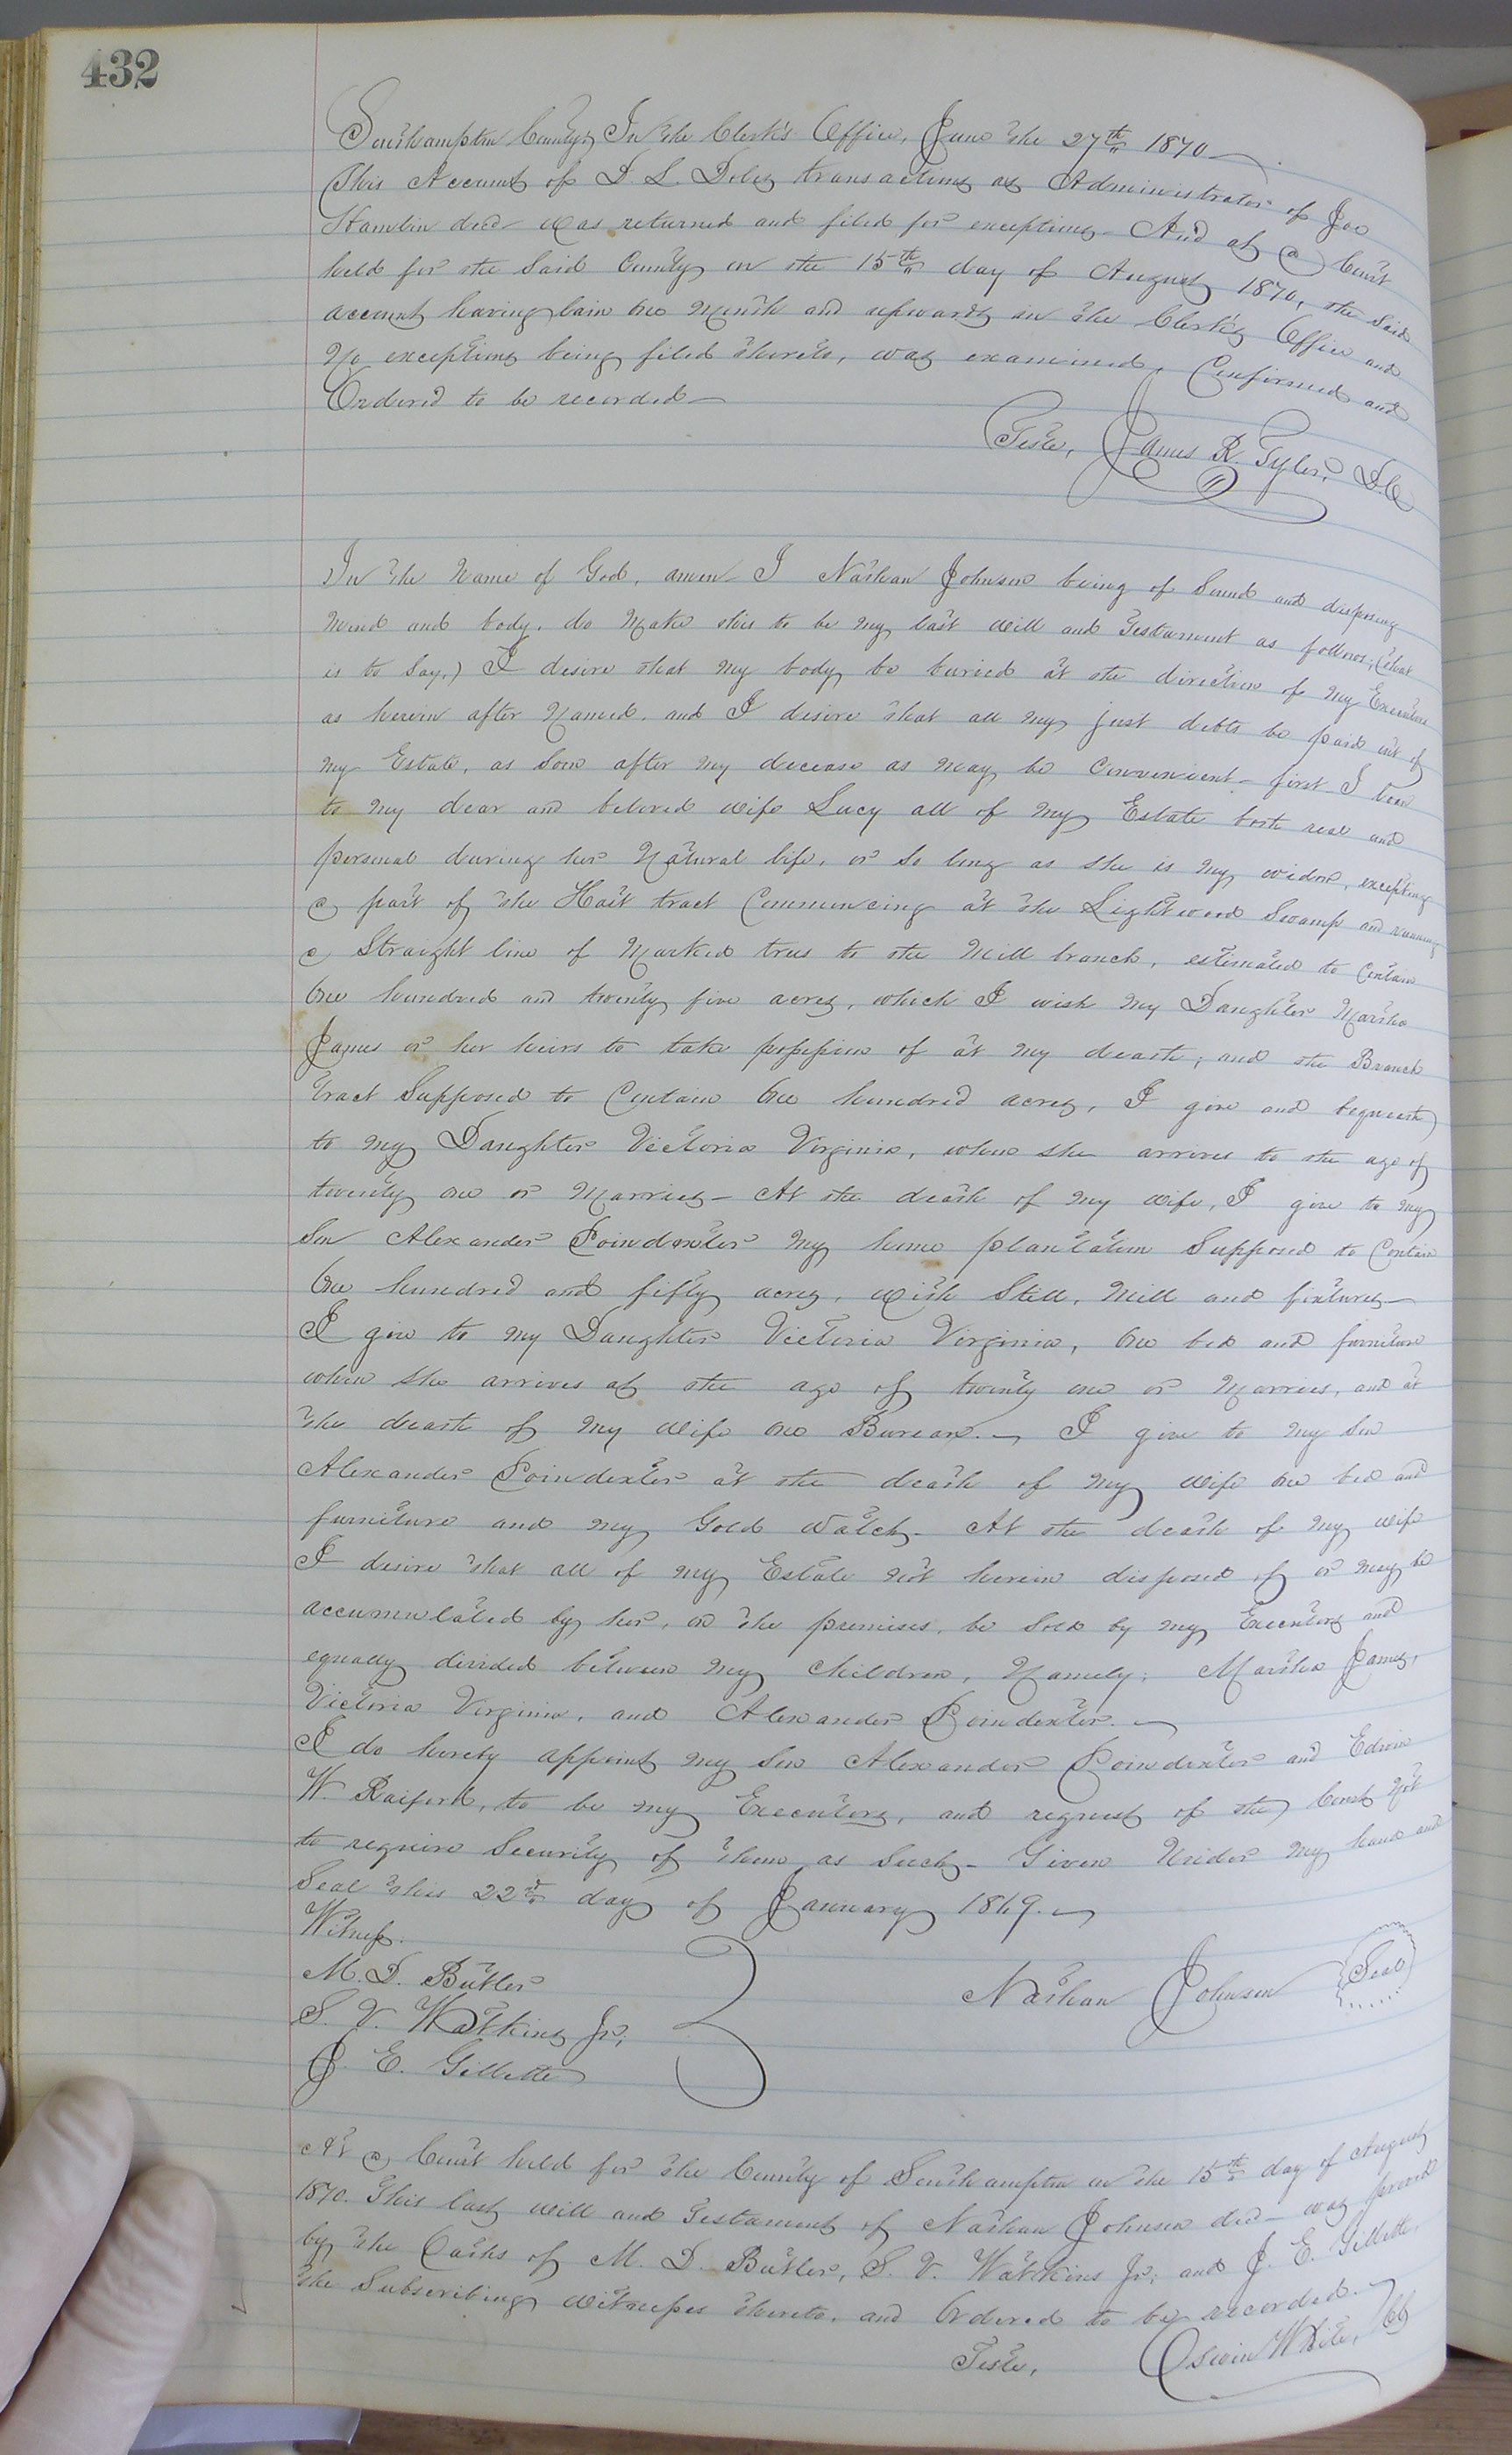 432
Southampton County, In the Clerk's Office, June the 27th 1870
This Account of D. L. Doles transactions as Administrator of Joe
Hamlin decd was returned and filed for exceptions. And at a Court
held for the said County on the 15th day of August 1870, the said
account having lain one Month and upwards in the Clerk's Office and
No exceptions being filed thereto, was examined, Confirmed and
Ordered to be recorded—
Teste, James R. Tyler, D.C.
In the Name of God, amen I Nathan Johnson being of Sound and disposing
Mind and body, do Make this to be My last will and Testament as follows; (that
is to Say,) I desire that my body be buried at the direction of My Executors
as herein after Named, and I desire that all My just debts be paid out of
My Estate, as Soon after My decease as May be Convenient— first I loan
to My dear and beloved wife Lucy all of My Estate both real and
personal during her Natural life, or So long as She is My widow, excepting
a part of the Hait tract Commencing at the Lightwood Swamp and running
a Straight line of Marked trees to the Mill branch, estimated to Contain
One hundred and twenty five acres, which I wish My Daughter Martha
James or her heirs to take possession of at My death; and the Branch
tract Supposed to Contain One hundred acres, I give and bequeath
to My Daughter Victoria Virginia, when She arrives to the age of
twenty one or Marries— At the death of My Wife, I give to My
Son Alexander Poindexter My home plantation Supposed to Contain
One hundred and fifty acres, With Still, Mill and fixtures—
I give to My Daughter Victoria Virginia, One bed and furniture
when She arrives at the age of twenty one or Marries, and at
the death of My Wife one Bureau.— I give to My Son
Alexander Poindexter at the death of My Wife one bed and
furniture and My Gold Watch— At the death of My wife
I desire that all of My Estate Not herein disposed of or May be
accumulated by her, on the premises, be Sold by My Executors and
equally divided between My Children, Namely; Martha James,
Victoria Virginia, and Alexander Poindexter.—
I do hereby appoint My Son Alexander Poindexter and Edwin
W. Raiford, to be My Executors, and request of the Court Not
to require Security of them as Such— Given Under My hand and
Seal this 22nd day of January 1869.—
Witness.
M. D. Butler
S. V. Watkins Jr,
J. E. Gillette
Nathan Johnson Seal
At a Court held for the County of Southampton on the 15th day of August
1870. This last will and Testament of Nathan Johnson decd— was proved
by the Oaths of M. D. Butler, S. V. Watkins Jr, and J. E. Gillette,
the Subscribing witnesses thereto, and Ordered to be recorded.—
Teste, Oswin White, CC